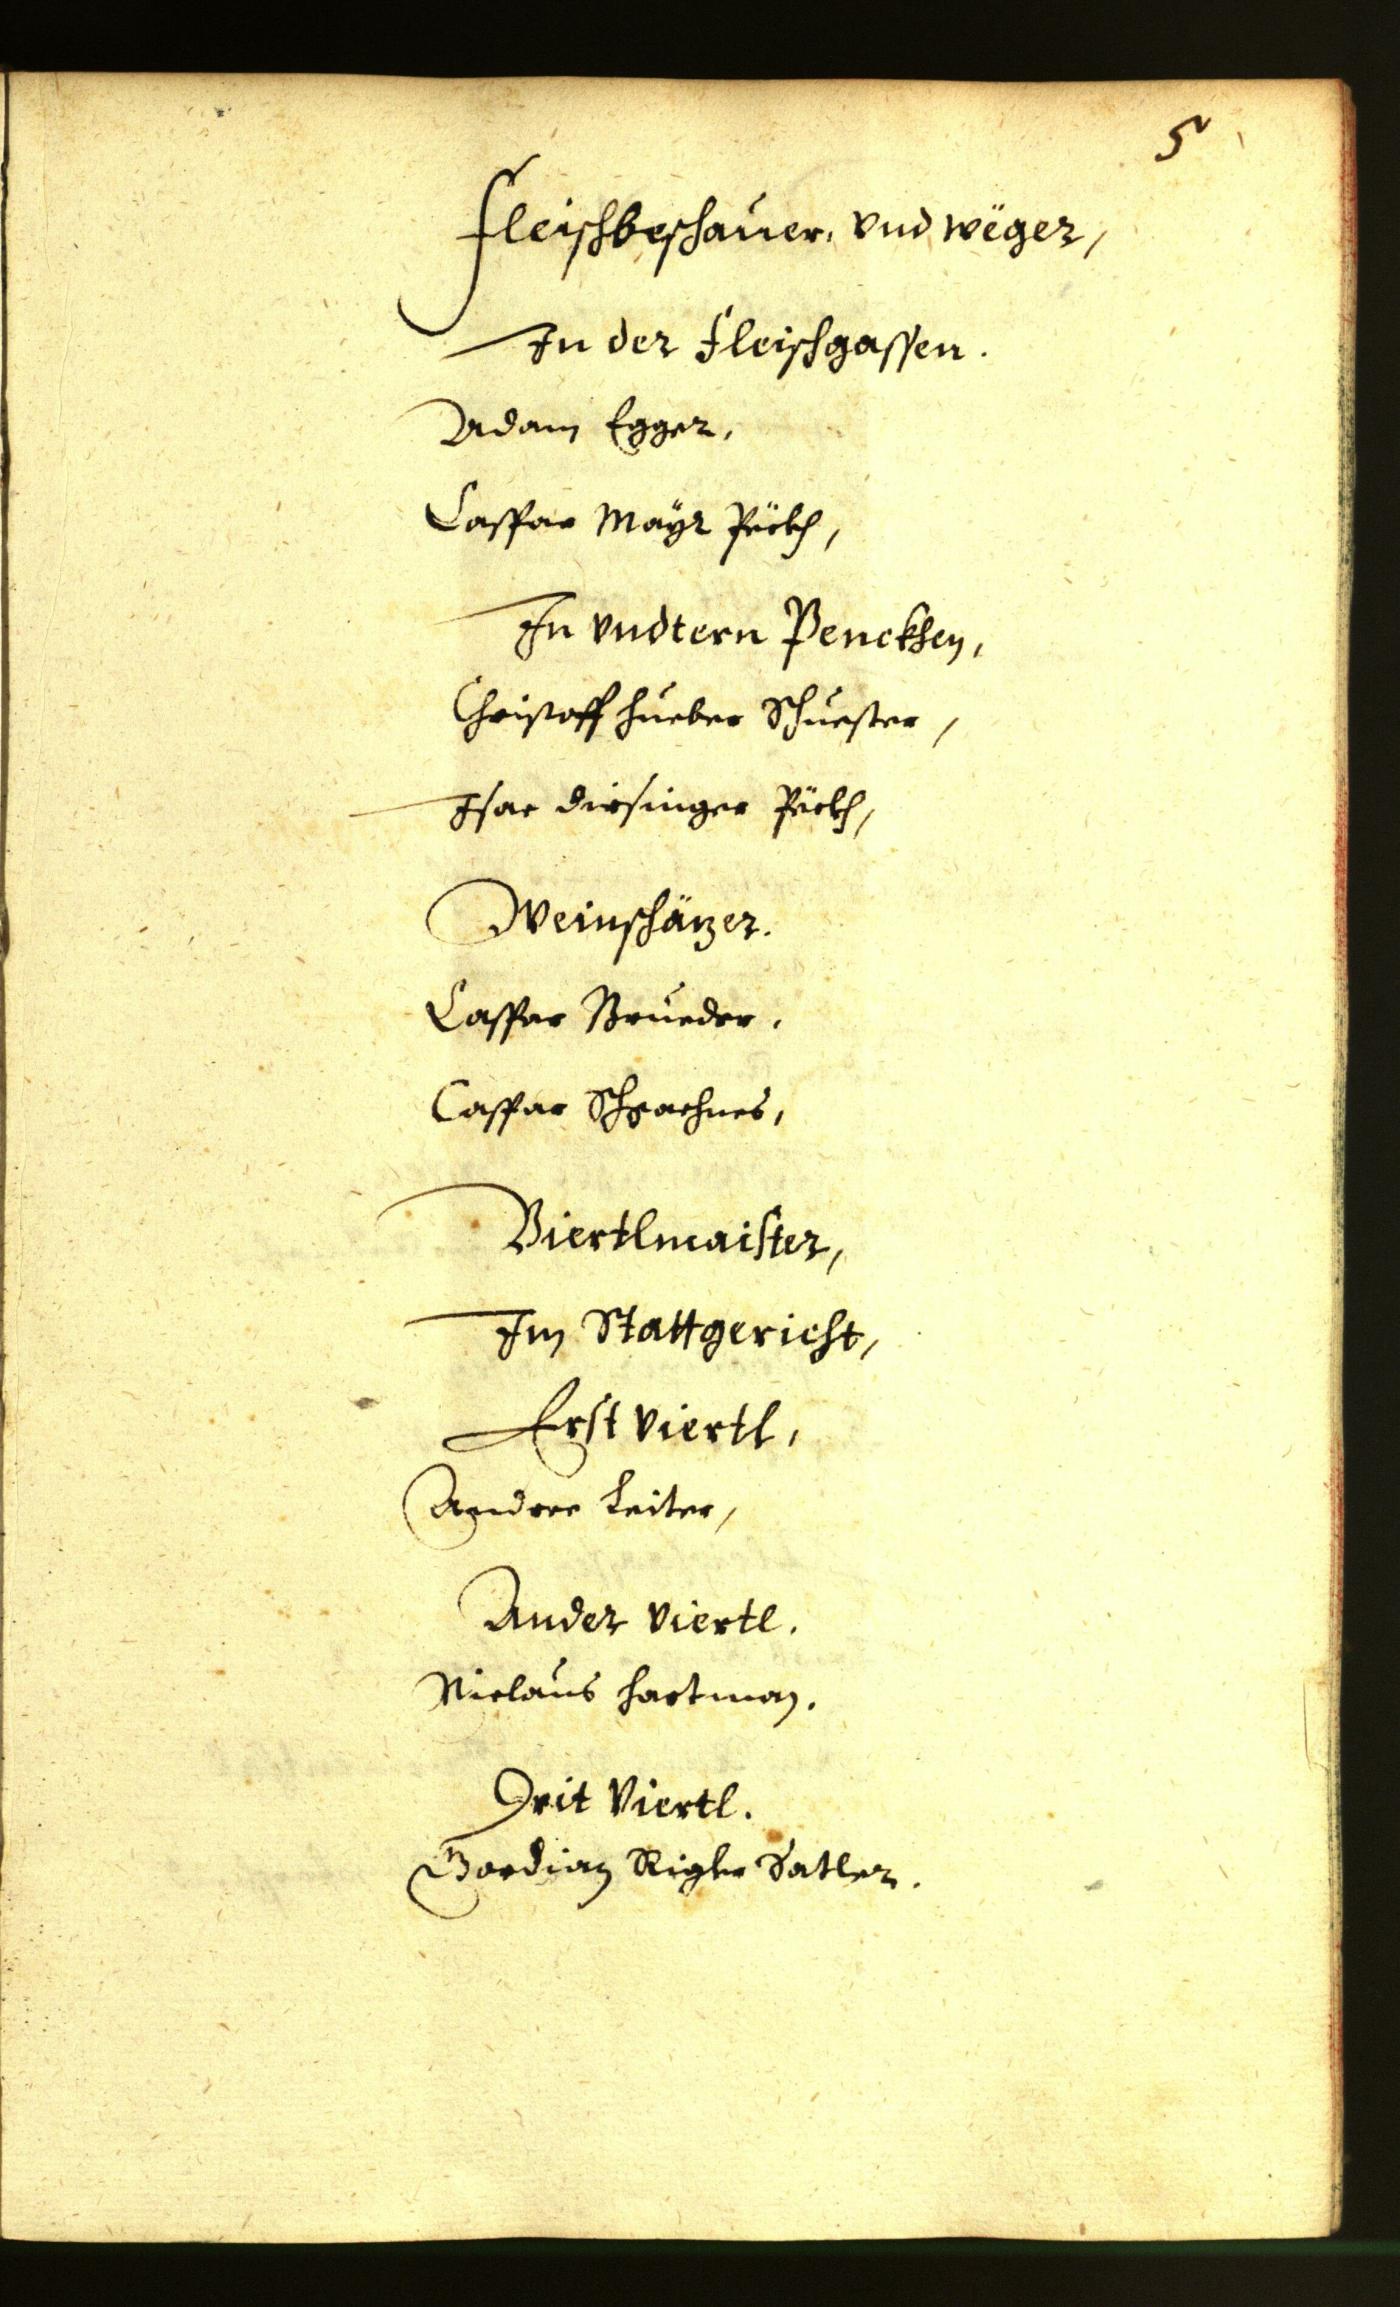 5
Fleischbeschauer, vnd wëger,
In der Fleischgassen.
Adam Egger,
Caspar Mayr Pëckh,
In vndtern Penckhen,
Christoff Hueber Schuester,
Isac Dirsinger Pëckh,
Weinschäzer.
Caspar Brueder.
Caspar
Viertlmaister,
Im Stattgericht,
Erst viertl,
Andree Leiter,
Ander viertl.
Niclaus Hartman.
Drit Viertl.
Gordian Rigler Satler.